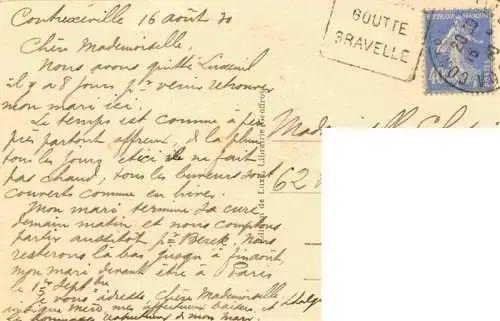 Contrexéville 16 août 30
Chère Mademoiselle,
Nous avons quitté Luxeuil
il y a 8 jours pr venir retrouver
mon mari ici.
Le temps est comme à peu
près partout affreux, de la pluie
tous les jours, et ici il ne fait
pas chaud, tous les buveurs sont
couverts comme en hiver.
Mon mari termine sa cure
demain matin et nous comptons
partir aussitôt pr Berck. Nous
resterons là bas jusqu'à fin août,
mon mari devant être à Paris
le 1er Septbre
Je vous adresse, Chère Mademoiselle,
mes affectueux baisers, et
hommages respectueux de mon mari.
GOUTTE
GRAVELLE
Mademoiselle
62
de Luxe, Librairie